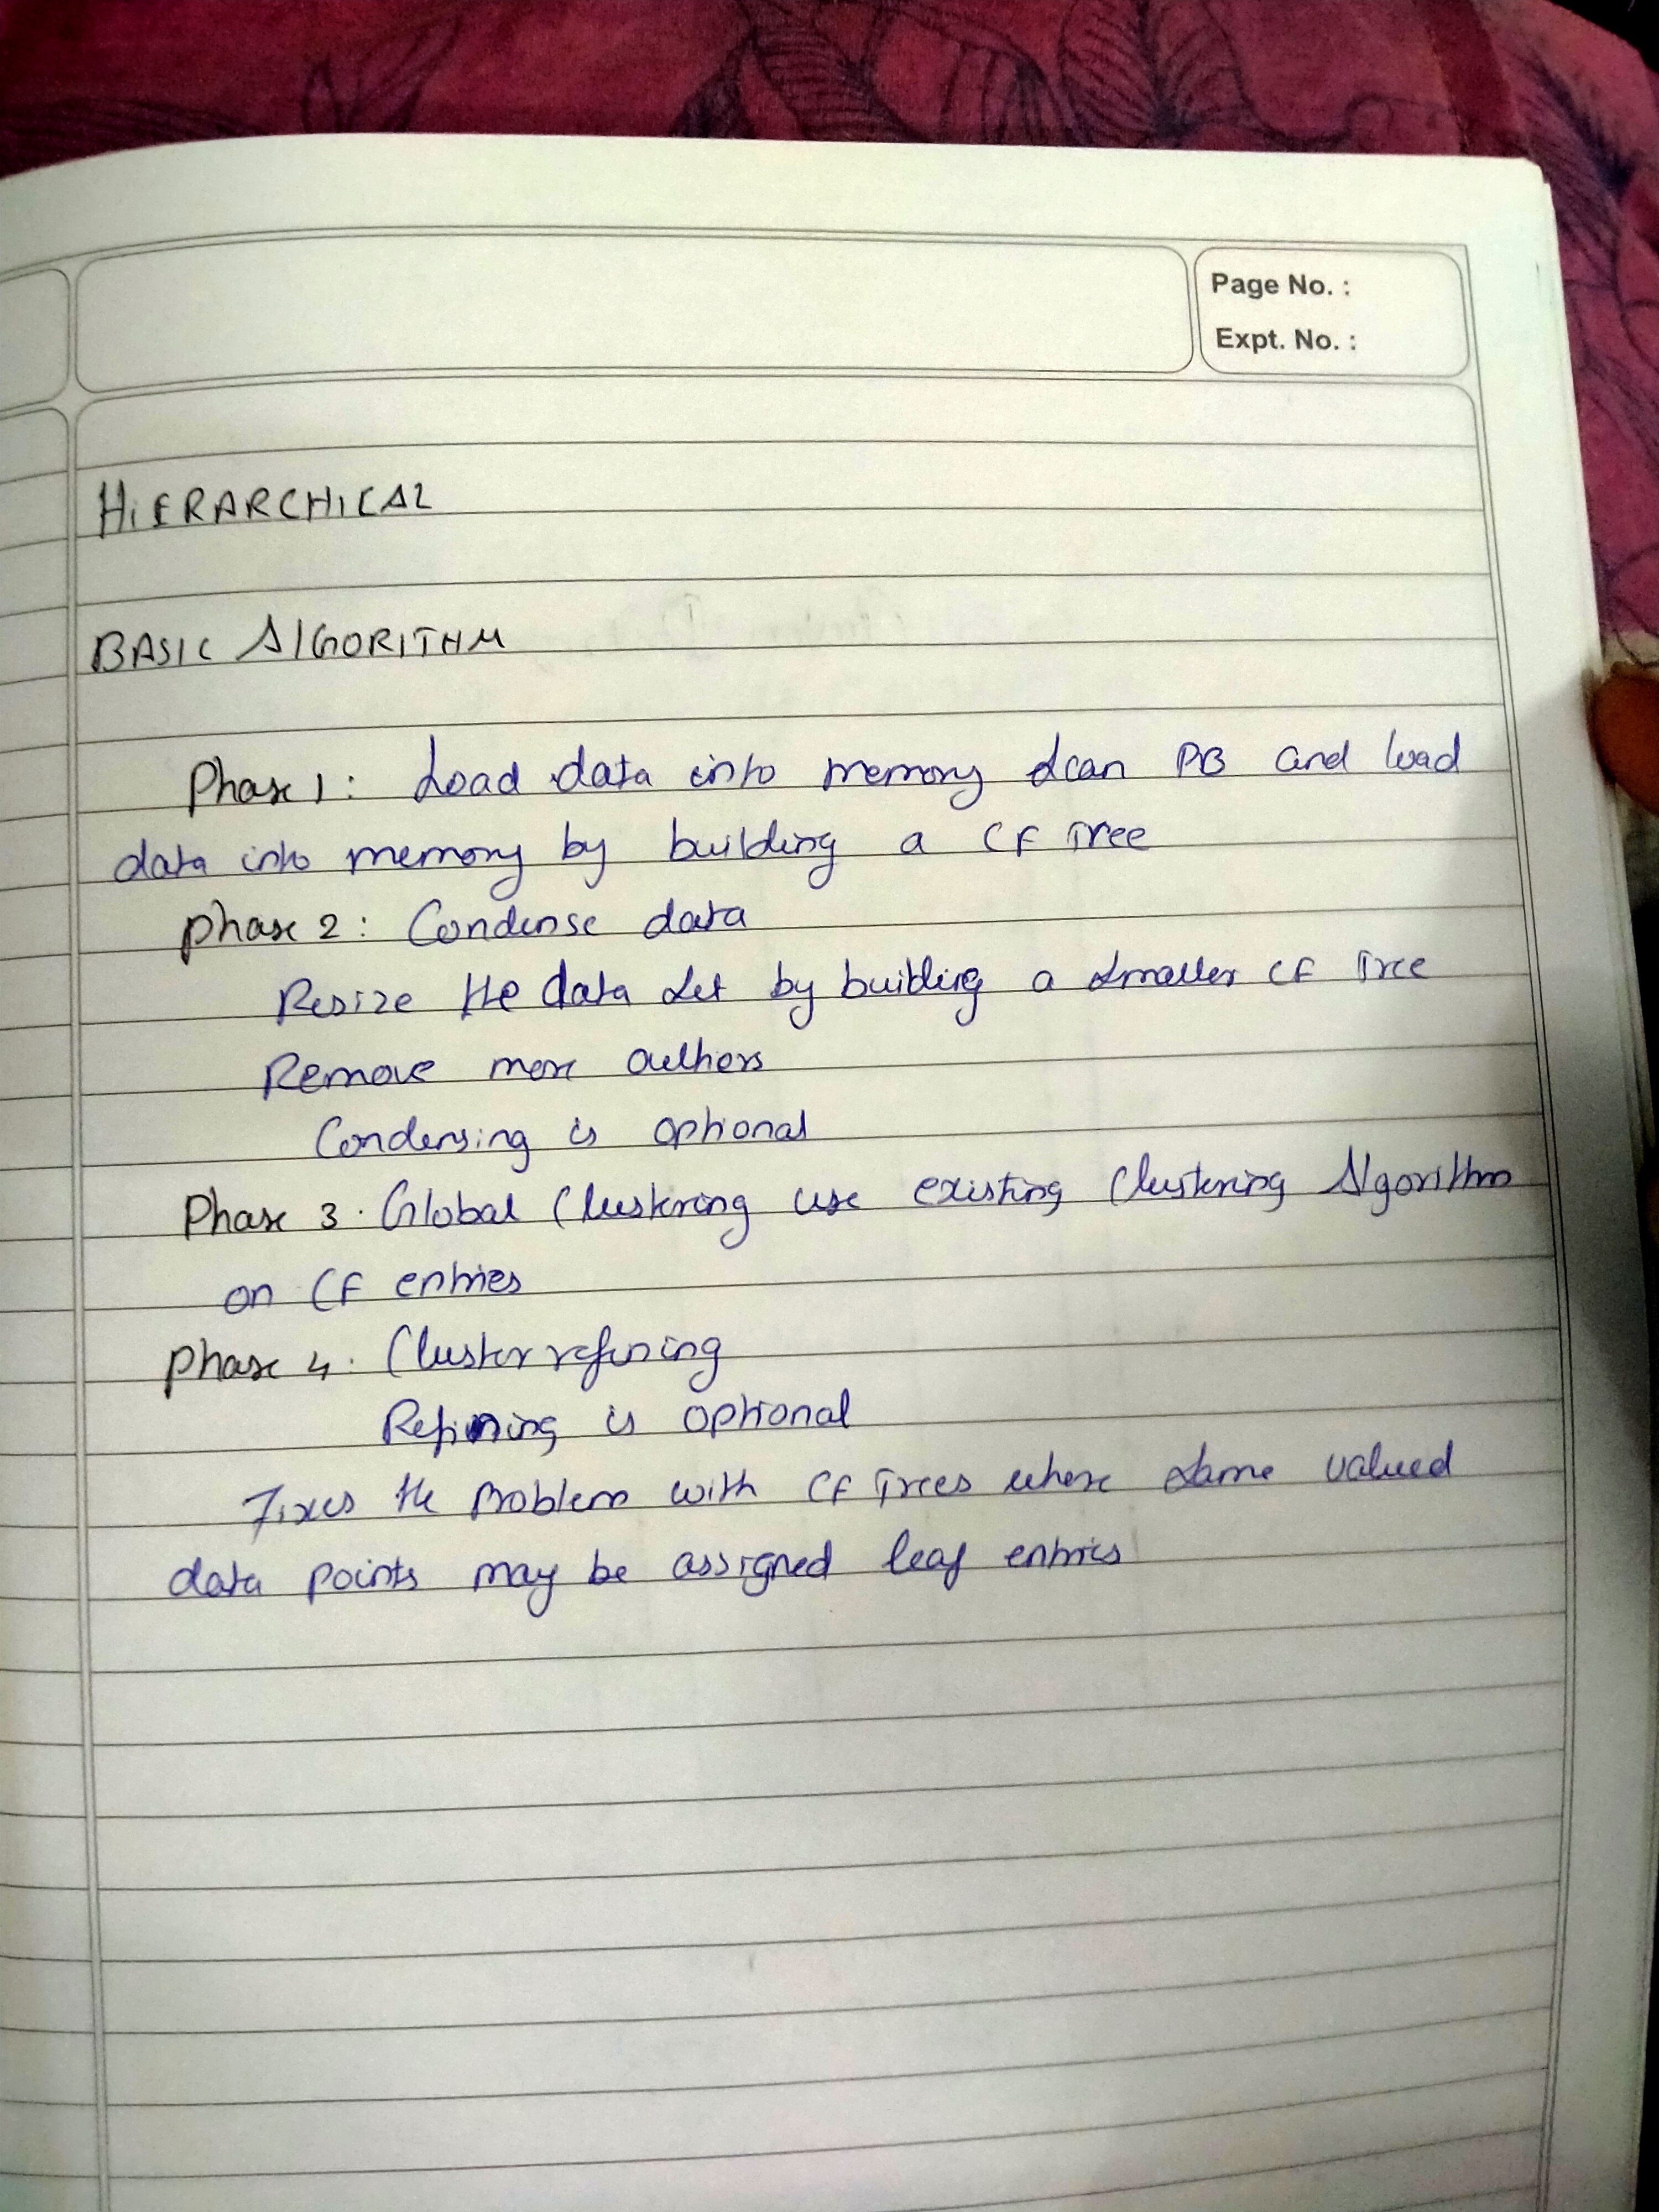 Page No. :
Expt. No. :
HIERARCHICAL
BASIC ALGORITHM
Phase 1 : Load data into memory Scan DB and load
data into memory by building a CF Tree
phase 2 : Condense data
Resize the data set by building a smaller CF Tree
Remove more outliers
Condensing is optional
Phase 3 . Global Clustering use existing Clustering Algorithm
on CF entries
phase 4 . Cluster refining
Refining is optional
Fixes the problem with CF Trees where same valued
data points may be assigned leaf entries